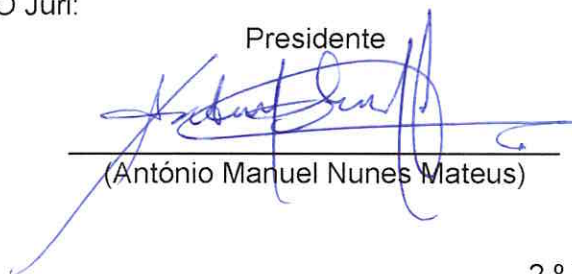 O Júri:
Presidente
(António Manuel Nunes Mateus)
2.º